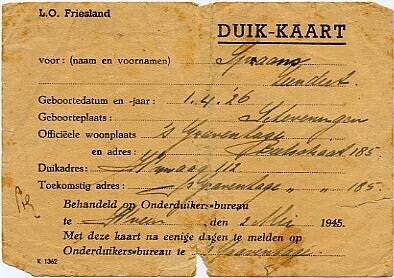 L.O. Friesland
DUIK-KAART
voor : (naam en voornamen) Spaans
Leendert.
Geboortedatum en -jaar : 1.4.'26
Geboorteplaats : Scheveningen
Officiëele woonplaats 's Gravenhage
en adres : straat 185.
Duikadres : 112
Toekomstig adres : 's Gravenhage " " 185.
Behandeld op Onderduikers-bureau
te den 2 Mei 1945.
Met deze kaart na eenige dagen te melden op
Onderduikers-bureau te 's Gravenhage
K 1362